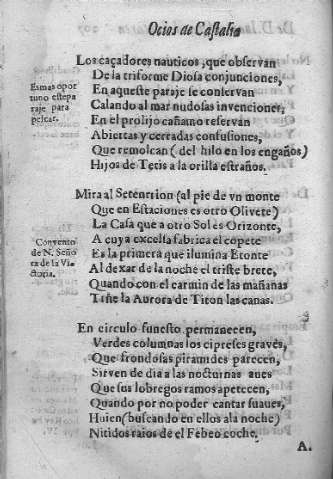 Ocios de Castalia
Los caçadores nauticos, que observan
De la triforme Diosa conjunciones,
Es mas opor
tuno este pa
raje para
pescar.
En aqueste paraje se conservan
Calando al mar nudosas invenciones,
En el prolijo cañamo reservan
Abiertas y cerradas confusiones,
Que remolcan (del hilo en los engaños)
Hijos de Tetis a la orilla estraños.
Mira al Setentrion (al pie de vn monte
Que en Estaciones es otro Olivete)
La Casa que a otro Sol es Orizonte,
Convento
de N. Seño
ra de la Vi-
ctoria.
A cuya excelsa fabrica el copete
Es la primera que ilumina Etonte
Al dexar de la noche el triste brete,
Quando con el carmin de las mañanas
Tiñe la Aurora de Titon las canas.
En circulo funesto permanecen,
Verdes columnas los cipreses graves,
Que frondosas piramides parecen,
Sirven de dia a las nocturnas aues
Que sus lobregos ramos apetecen,
Quando por no poder cantar suaues,
Huien (buscando en ellos ala noche)
Nitidos raios de el Febeo coche.
A.